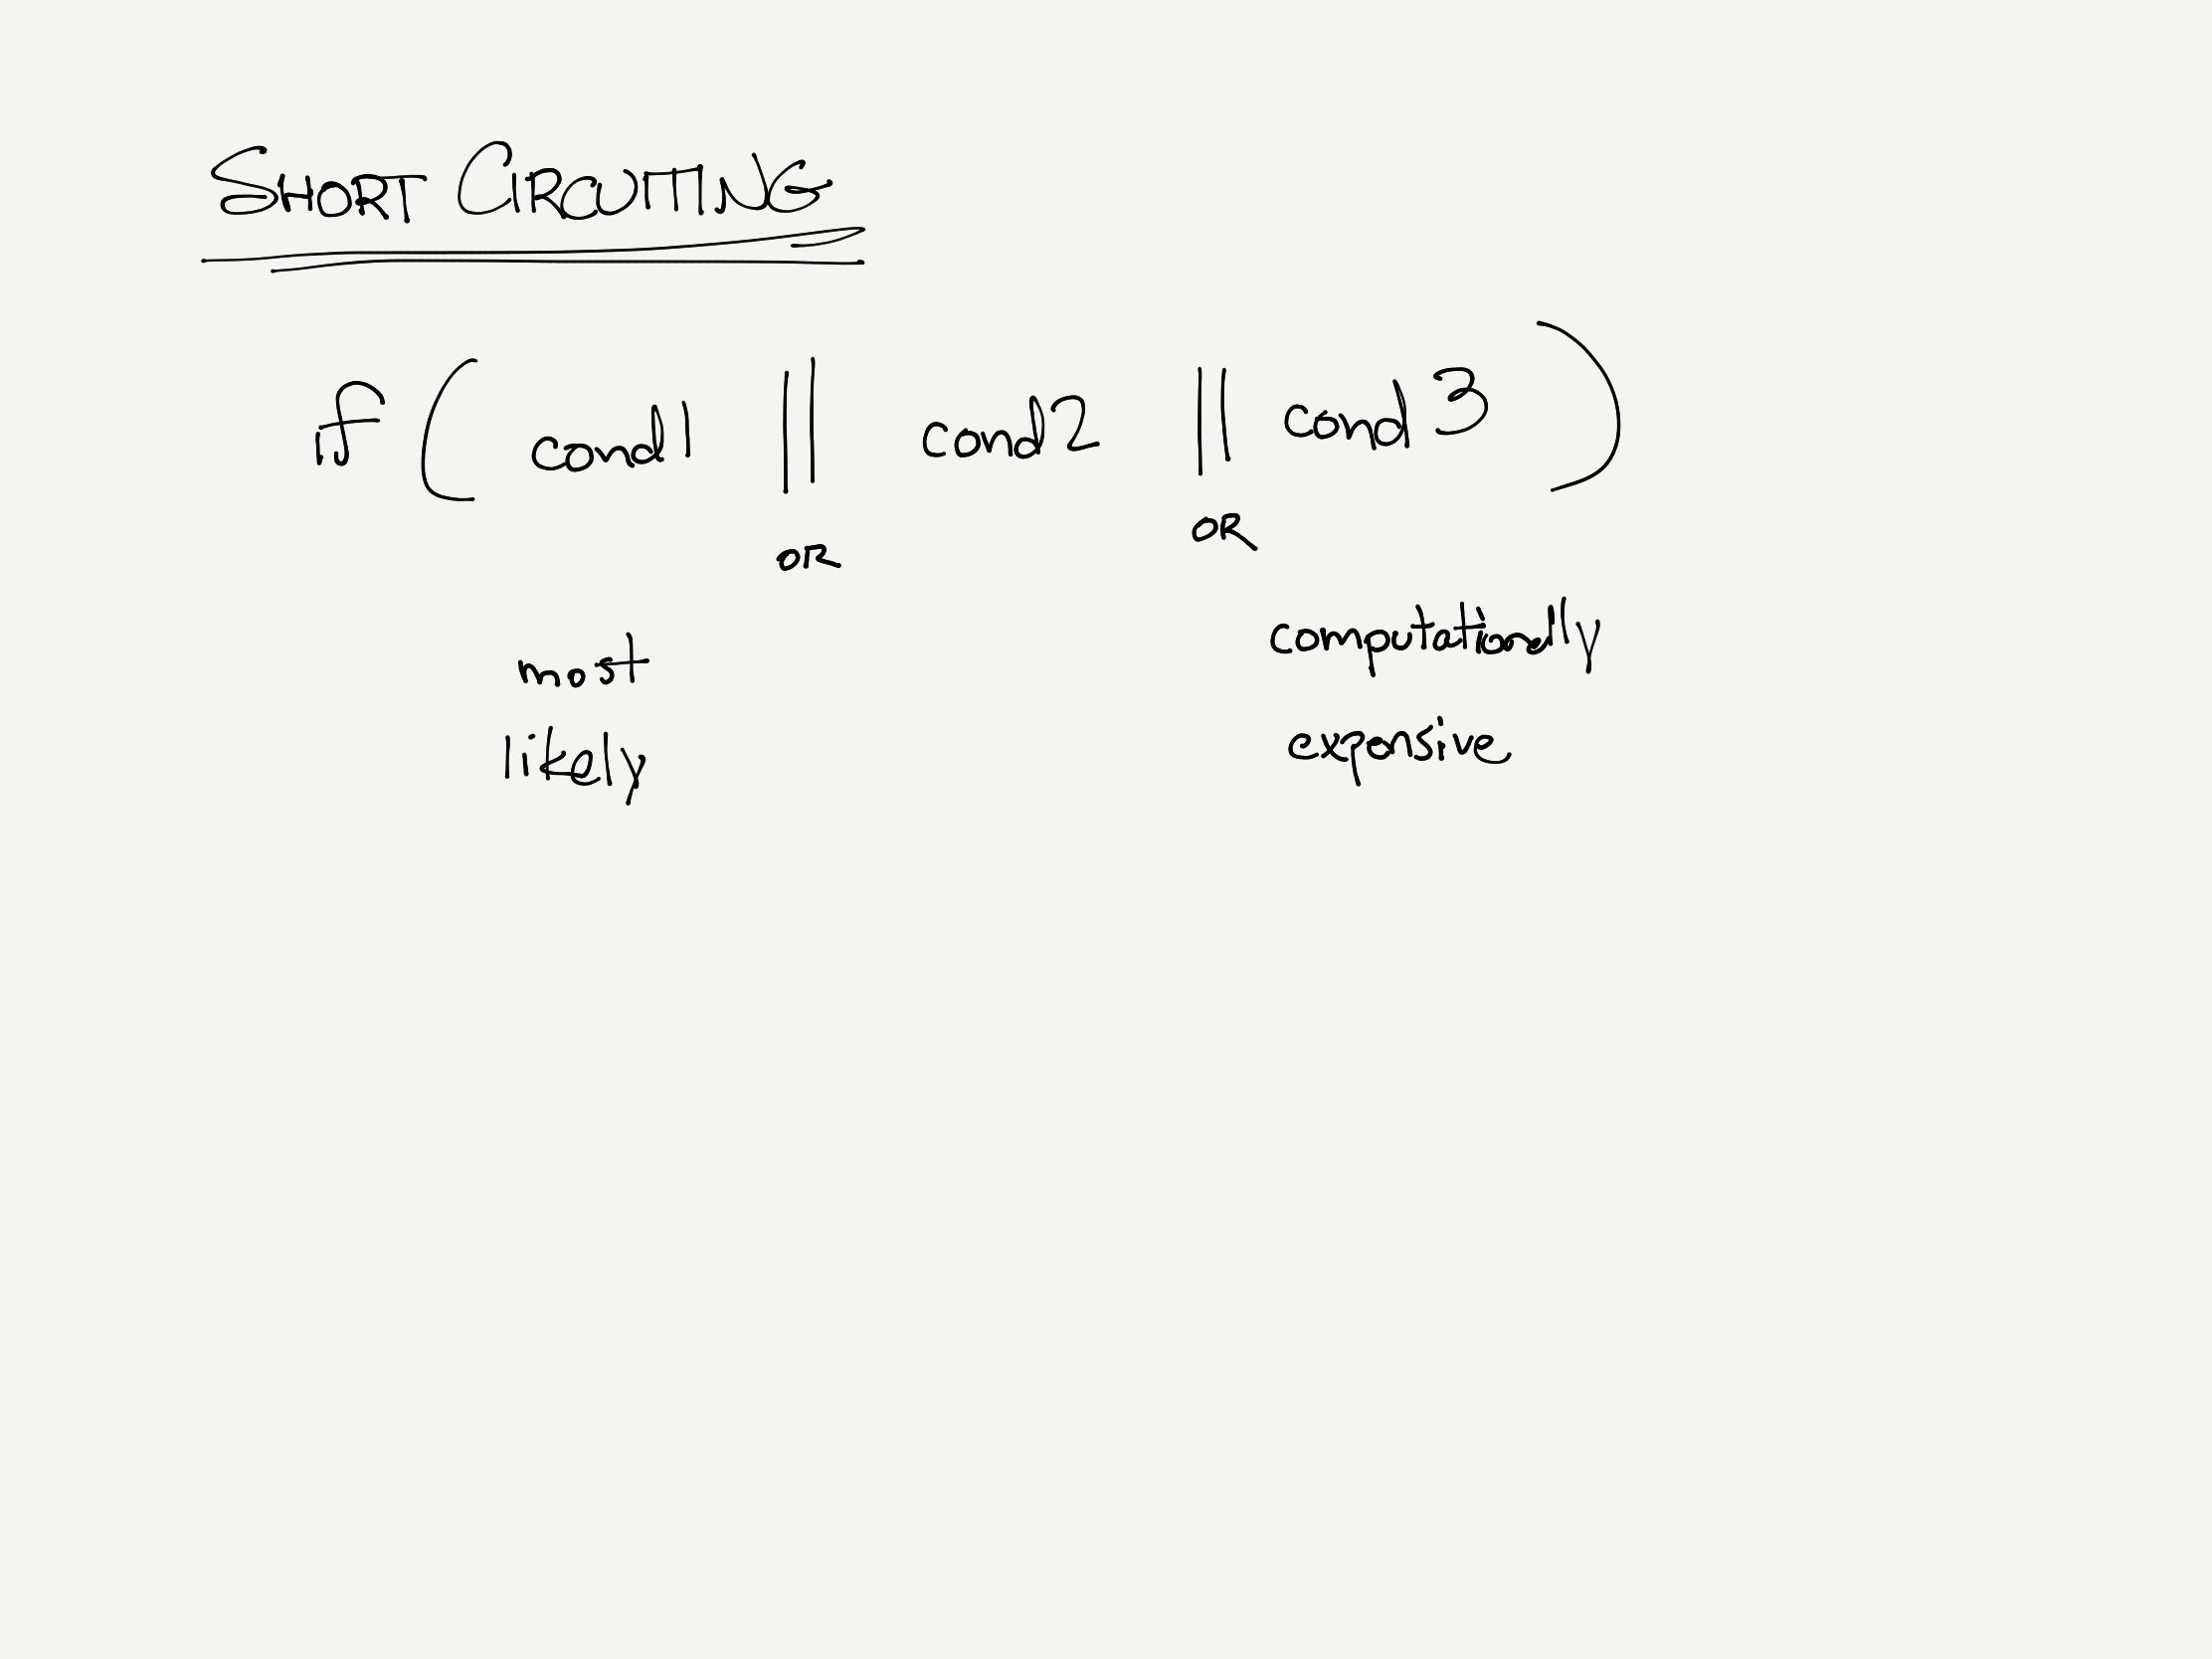 SHORT CIRCUITING
if ( cond1 || cond2 || cond3 )
OR OR
most computationally
likely expensive